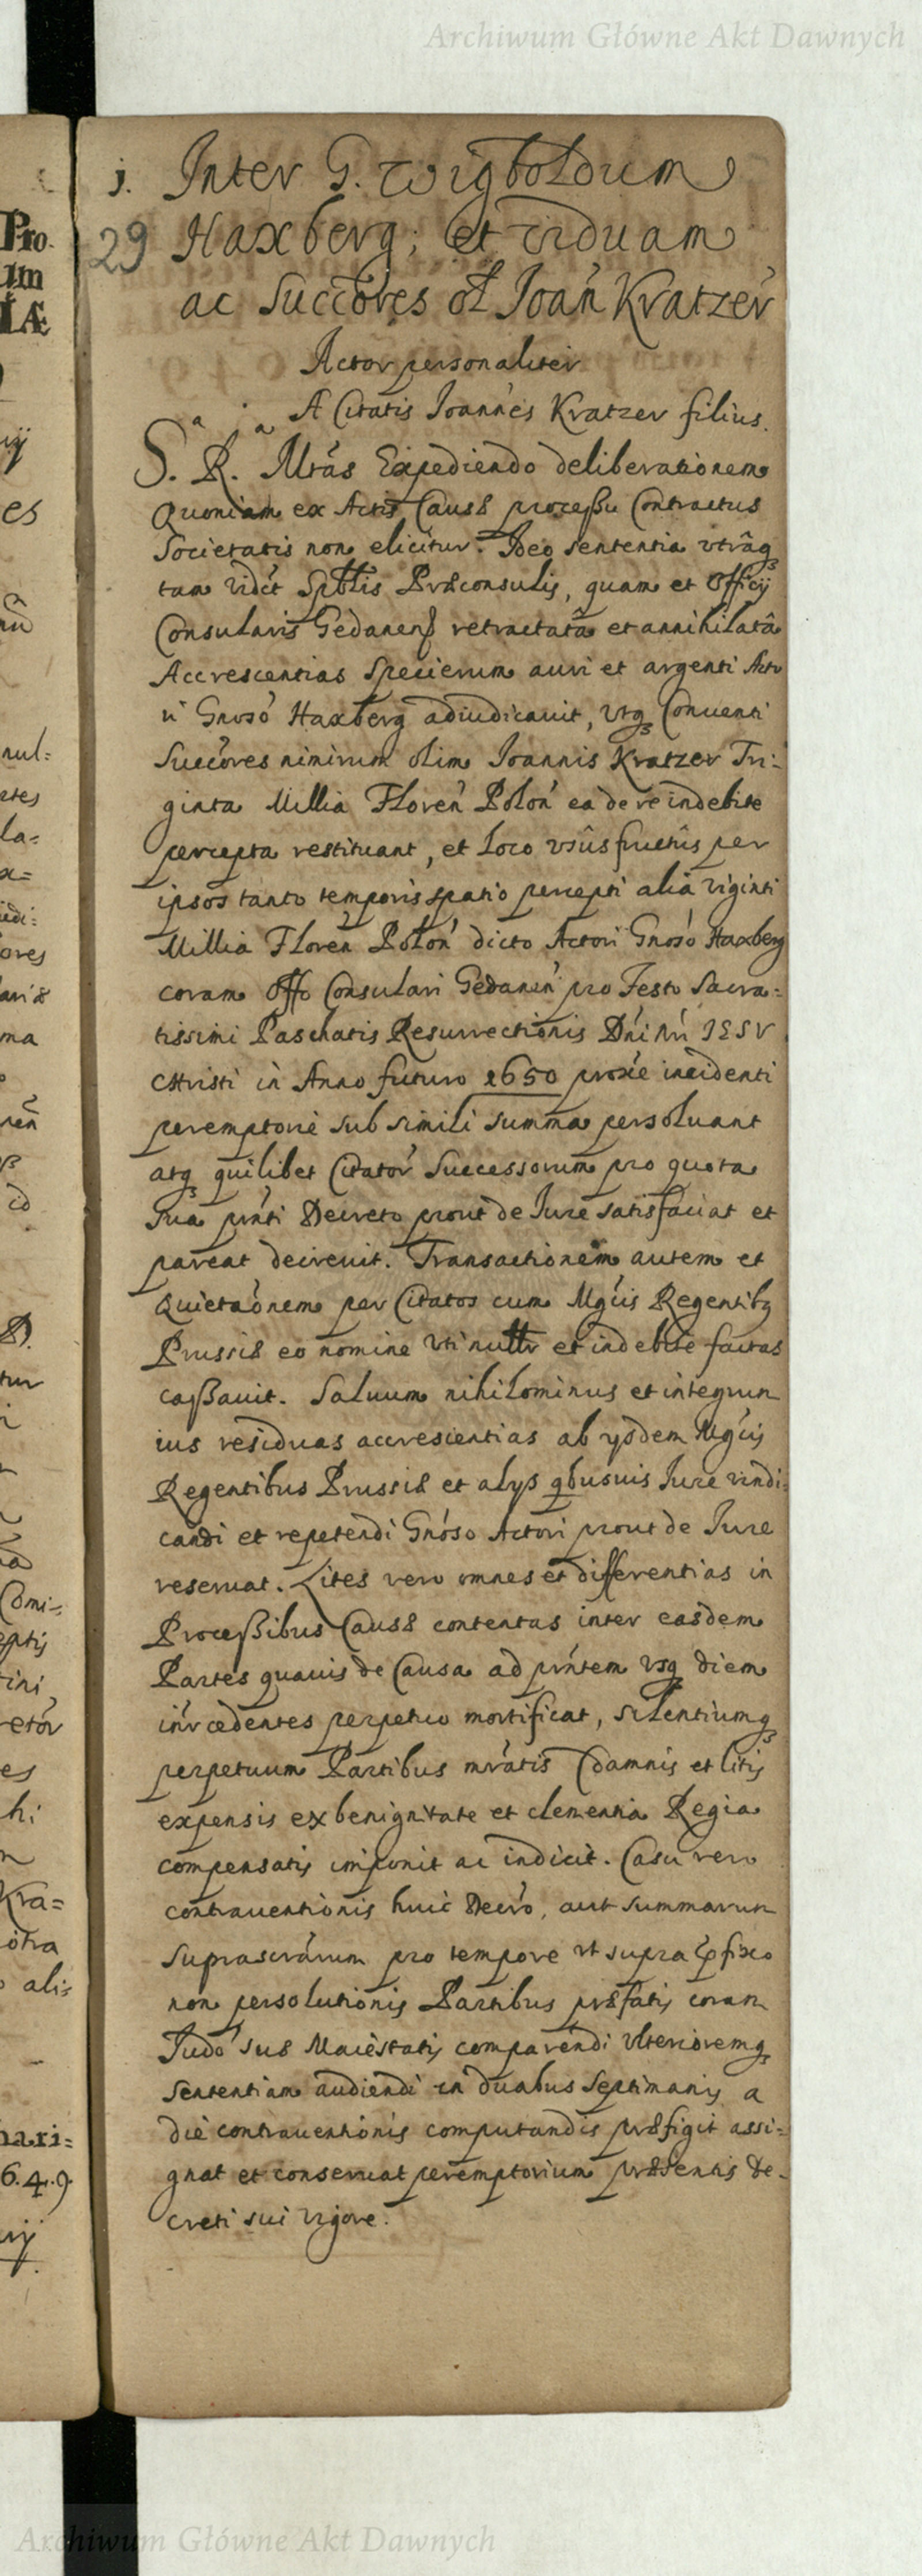 Archiwum Główne Akt Dawnych
j. Inter G. Wigboldum
29 Haxberg, et viduam
ac Succores ol Joan Kratzer
Actor personaliter
A Citatis Joannes Kratzer filius.
S. R. Mtas Expediendo deliberationem
Quoniam ex Actis Causæ processu Contractus
Societatis non elicitur. Ideo sententia utraq
tam vidct Spblis Præconsulis, quam et Officij
Consularis Gedanens retractata et annihilata
Accrescentias Specierum auri et argenti Acto
ri Gnoso Haxberg adiudicauit, utq Conuenti
Succores nimirum olim Joannis Kratzer Tri-
ginta Millia Floren Polon ea de re indebite
percepta restituant, et loco ususfructus per
ipsos tanto temporis spatio percepti alia viginti
Millia Floren Polon dicto Actori Gnoso Haxberg
coram Offo Consulari Gedanen pro Festo Sacra-
tissimi Paschatis Resurrectionis Dni Nri JESV
CHristi in Anno futuro 1650 proxe incidenti
peremptorie sub simili summa persoluant
atq quilibet Citator Successorum pro quota
sua pnti Decreto prout de Jure satisfaciat et
pareat decreuit. Transactionem autem et
Quietaonem per Citatos cum Mgcis Regentibq
Prussiæ eo nomine uti et indebite factas
cassauit. Saluum nihilominus et integrum
ius residuas accrescientias ab ijsdem Mgcis
Regentibus Prussiæ et alijs qbusuis Jure vindi-
candi et repetendi Gnoso Actori prout de Jure
reseruat. Lites vero omnes et differentias in
Processibus Causæ contentas inter easdem
Partes quauis de Causa ad pntem usq diem
intrcedentes perpetuo mortificat, silentiumq
perpetuum Partibus mratis (damnis et litis
expensis ex benignitate et clementia Regia
compensatis imponit ac indicit. Casu vero
contrauentionis huic Decro, aut summarum
suprascrarum pro tempore ut supra pfixo
non persolutionis Partibus præfatis coram
Judo suæ Maiestatis comparendi ulterioremq
sententiam audiendi in duabus Septimanis a
die contrauentionis computandis præfigit assi-
gnat et conseruat peremptorium præsentis De-
creti sui vigore.
Archiwum Główne Akt Dawnych